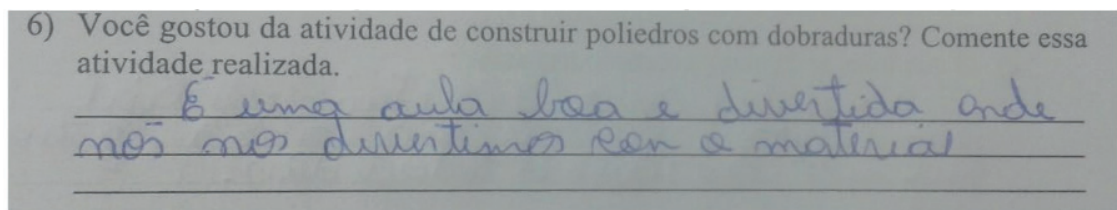 6) Você gostou da atividade de construir poliedros com dobraduras? Comente essa
atividade realizada.
É uma aula boa e divertida onde
nós nos divertimos con o material